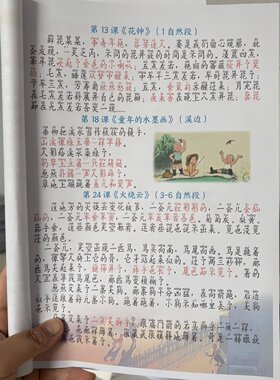 第13课《花钟》(1自然段)
鲜花朵朵,争奇斗艳,芬芳迷人。要是我们留心观察,就
会发现,一天之内,不同的花开放的时间是不同的。凌晨四点,
牵牛花吹起了紫色的小喇叭;五点左右,艳丽的蔷薇绽开了笑
脸;七点,睡莲从梦中醒来;中午十二点左右,午时花开花了;下
午三点,万寿菊欣然怒放;傍晚六点,烟草花在暮色中苏醒;月光花
在七点左右舒展开自己的花瓣;夜来香在晚上八点开花;昙花
却在九点左右含笑一现……
第18课《童年的水墨画》(溪边)
垂柳把溪水当作梳妆的镜子,
山溪像绿玉带一样平静。
人影给溪水染绿了,
钓竿上立着一只红蜻蜓。
忽然扑腾一声人影碎了,
草地上蹦跳着鱼儿和笑声。
第24课《火烧云》(3-6自然段)
这地方的火烧云变化极多,一会儿红彤彤的,一会儿金灿
灿的,一会儿半紫半黄,一会儿半灰半百合色。葡萄灰、梨黄、茄子
紫,这些颜色天空都有。还有些说也说不出来、见也没见过的
颜色。
一会儿,天空出现一匹马,马头向南,马尾向西。马是跪着
的,像等人骑上它的背,它才站起来似的。过了两三秒钟,那匹
马大起来了,腿伸开了,脖子也长了,尾巴可不见了。看
的人正在寻找马尾巴,那匹马变模糊了。
忽然又来了一条大狗。那条狗十分凶猛,在向前跑,后边似
乎还跟着好几条小狗。跑着跑着,小狗不知哪里去了,大狗也
不见了。
接着又来了一头大狮子,跟庙门前的石头狮子一模一样,